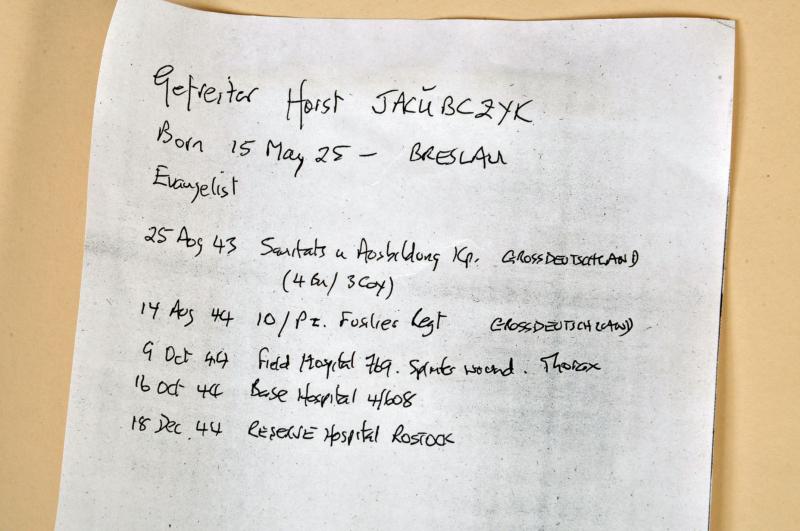 Gefreiter Horst JACŬBCZYK
Born 15 May 25 - BRESLAU
Evangelist
25 Aug 43 Sanitats u Ausbildung Kp. GROSSDEUTSCHLAND
(4 Gu/3 Coy)
14 Aug 44 10/Pz. Fusilier Regt GROSSDEUTSCHLAND
9 Oct 44 Field Hospital 769. Splinter wound. Thorax
16 Oct 44 Base Hospital 4/608
18 Dec. 44 RESERVE Hospital ROSTOCK